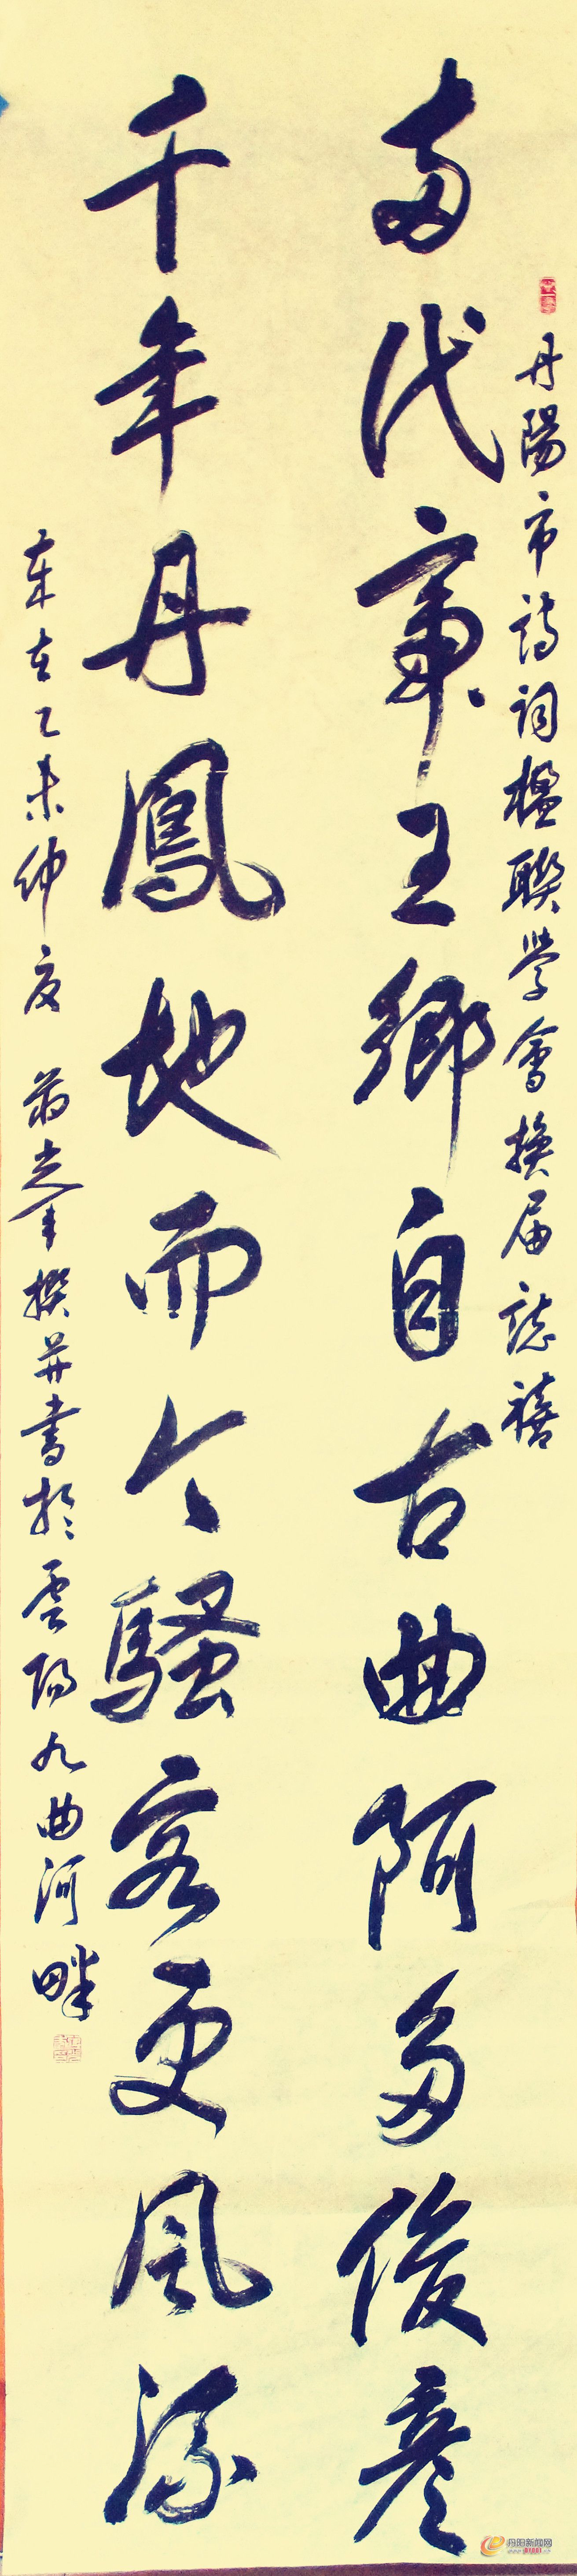 丹陽市詩詞楹聯学會換届誌禧
两代帝王鄉自古曲阿多俊彦
千年丹鳳地而今騷客更風流
歲在乙未仲夏 撰并書於雲陽九曲河畔
丹阳新闻网